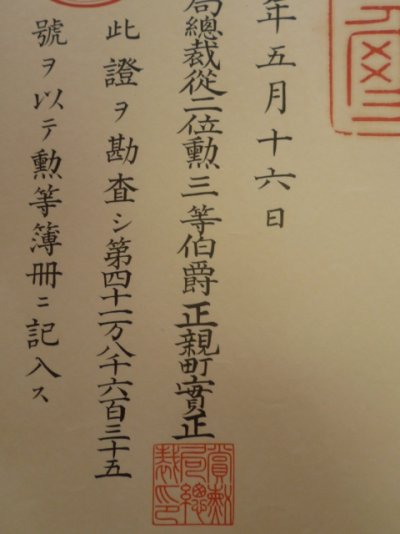 年五月十六日
局總裁從二位勲三等伯爵正親町實正
此證ヲ勘査シ第四十一万八千六百三十五
號ヲ以テ勲等簿冊ニ記入ス
賞勲局總裁之印